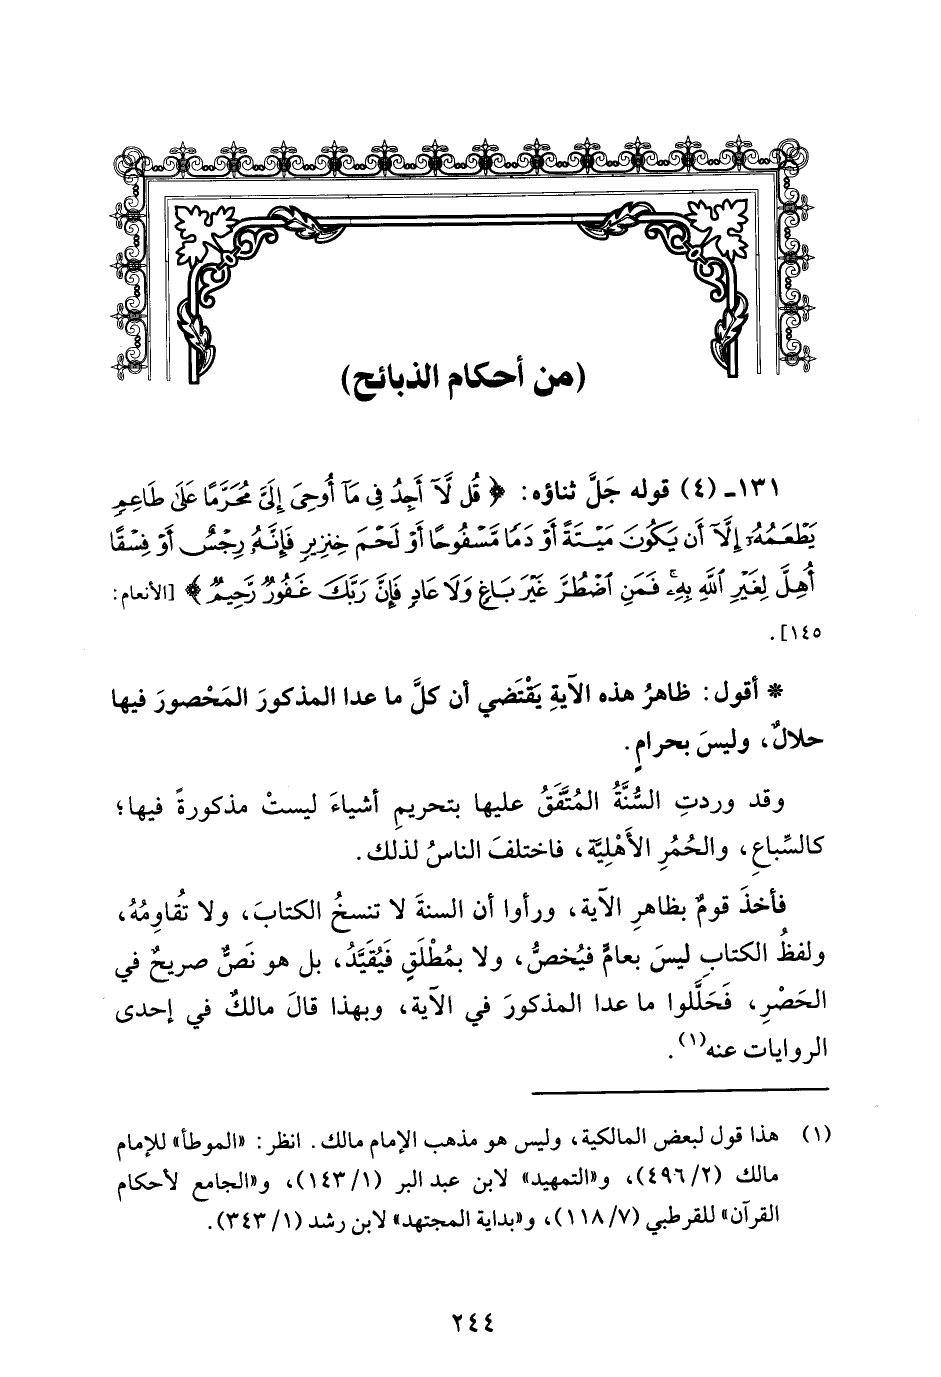 (من أحكام الذبائح)
١٣١ـ (٤) قوله جَلَّ ثناؤه: ﴿ قُل لَّآ أَجِدُ فِى مَآ أُوحِىَ إِلَىَّ مُحَرَّمًا عَلَىٰ طَاعِمٍ
يَطْعَمُهُۥٓ إِلَّآ أَن يَكُونَ مَيْتَةً أَوْ دَمًا مَّسْفُوحًا أَوْ لَحْمَ خِنزِيرٍ فَإِنَّهُۥ رِجْسٌ أَوْ فِسْقًا
أُهِلَّ لِغَيْرِ ٱللَّهِ بِهِۦ ۚ فَمَنِ ٱضْطُرَّ غَيْرَ بَاغٍ وَلَا عَادٍ فَإِنَّ رَبَّكَ غَفُورٌ رَّحِيمٌ ﴾ [الأنعام:
١٤٥].
* أقول: ظاهرُ هذه الآيةِ يَقْتَضي أن كلَّ ما عدا المذكورَ المَحْصورَ فيها
حلالٌ، وليسَ بحرامٍ.
وقد وردتِ السُّنَّةُ المُتَّفَقُ عليها بتحريمِ أشياءَ ليستْ مذكورةً فيها؛
كالسِّباعِ، والحُمُرِ الأَهْلِيَّة، فاختلفَ الناسُ لذلك.
فأخذَ قومٌ بظاهرِ الآية، ورأوا أن السنةَ لا تنسخُ الكتابَ، ولا تُقاوِمُهُ،
ولفظُ الكتابِ ليسَ بعامٍّ فيُخصُّ، ولا بمُطْلَقٍ فَيُقَيَّدُ، بل هو نَصٌّ صريحٌ في
الحَصْرِ، فَحَلَّلوا ما عدا المذكورَ في الآية، وبهذا قالَ مالكٌ في إحدى
الروايات عنه(١).
(١) هذا قول لبعض المالكية، وليس هو مذهب الإمام مالك. انظر: «الموطأ» للإمام
مالك (٢/ ٤٩٦)، و«التمهيد» لابن عبد البر (١/ ١٤٣)، و«الجامع لأحكام
القرآن» للقرطبي (٧/ ١١٨)، و«بداية المجتهد» لابن رشد (١/ ٣٤٣).
٢٤٤